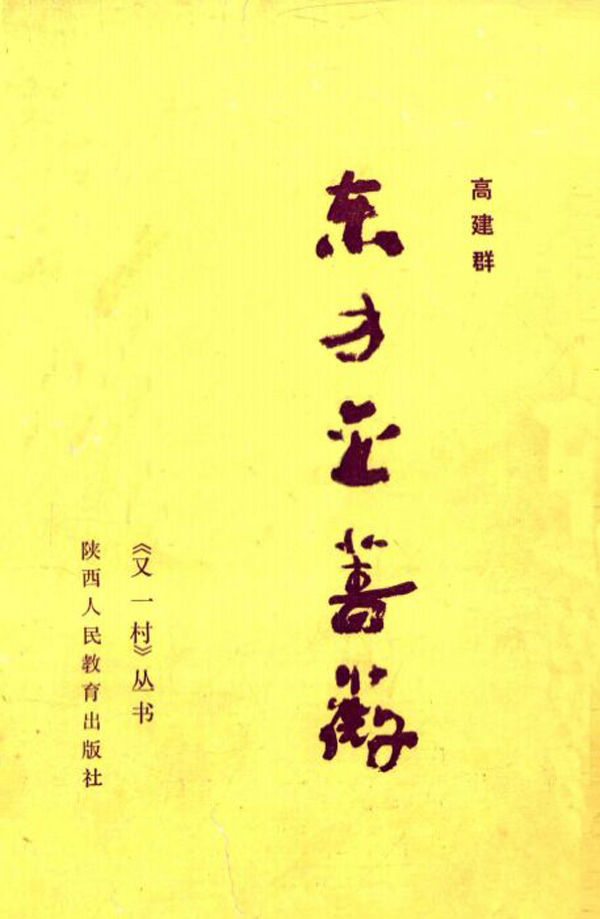 高建群
东方金蔷薇
《又一村》丛书
陕西人民教育出版社